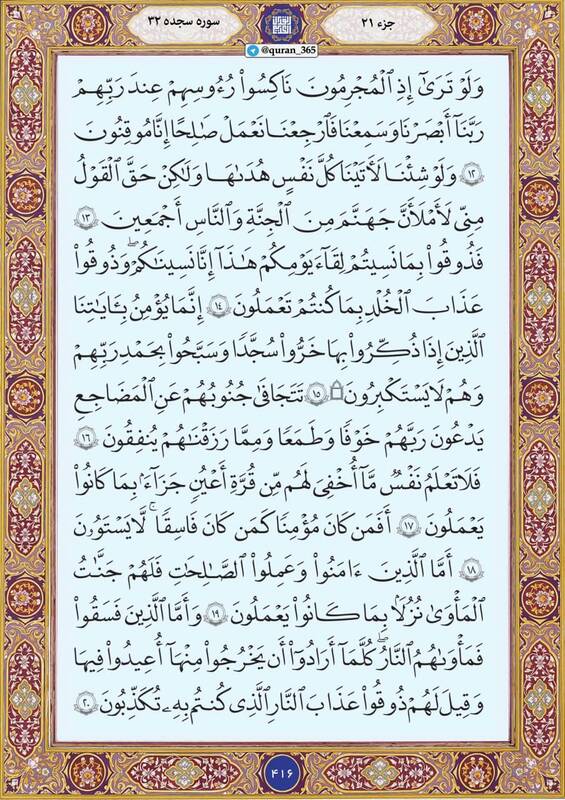 جزء ۲۱
سوره سجده ۳۲
@quran_365
وَلَوْ تَرَىٰٓ إِذِ ٱلْمُجْرِمُونَ نَاكِسُوا۟ رُءُوسِهِمْ عِندَ رَبِّهِمْ
رَبَّنَآ أَبْصَرْنَا وَسَمِعْنَا فَٱرْجِعْنَا نَعْمَلْ صَـٰلِحًا إِنَّا مُوقِنُونَ
۱۲ وَلَوْ شِئْنَا لَـَٔاتَيْنَا كُلَّ نَفْسٍ هُدَىٰهَا وَلَـٰكِنْ حَقَّ ٱلْقَوْلُ
مِنِّى لَأَمْلَأَنَّ جَهَنَّمَ مِنَ ٱلْجِنَّةِ وَٱلنَّاسِ أَجْمَعِينَ ۱۳
فَذُوقُوا۟ بِمَا نَسِيتُمْ لِقَآءَ يَوْمِكُمْ هَـٰذَآ إِنَّا نَسِينَـٰكُمْ ۖ وَذُوقُوا۟
عَذَابَ ٱلْخُلْدِ بِمَا كُنتُمْ تَعْمَلُونَ ۱۴ إِنَّمَا يُؤْمِنُ بِـَٔايَـٰتِنَا
ٱلَّذِينَ إِذَا ذُكِّرُوا۟ بِهَا خَرُّوا۟ سُجَّدًا وَسَبَّحُوا۟ بِحَمْدِ رَبِّهِمْ
وَهُمْ لَا يَسْتَكْبِرُونَ ۱۵ تَتَجَافَىٰ جُنُوبُهُمْ عَنِ ٱلْمَضَاجِعِ
يَدْعُونَ رَبَّهُمْ خَوْفًا وَطَمَعًا وَمِمَّا رَزَقْنَـٰهُمْ يُنفِقُونَ ۱۶
فَلَا تَعْلَمُ نَفْسٌ مَّآ أُخْفِىَ لَهُم مِّن قُرَّةِ أَعْيُنٍ جَزَآءًۢ بِمَا كَانُوا۟
يَعْمَلُونَ ۱۷ أَفَمَن كَانَ مُؤْمِنًا كَمَن كَانَ فَاسِقًا ۚ لَّا يَسْتَوُۥنَ
۱۸ أَمَّا ٱلَّذِينَ ءَامَنُوا۟ وَعَمِلُوا۟ ٱلصَّـٰلِحَـٰتِ فَلَهُمْ جَنَّـٰتُ
ٱلْمَأْوَىٰ نُزُلًۢا بِمَا كَانُوا۟ يَعْمَلُونَ ۱۹ وَأَمَّا ٱلَّذِينَ فَسَقُوا۟
فَمَأْوَىٰهُمُ ٱلنَّارُ ۖ كُلَّمَآ أَرَادُوٓا۟ أَن يَخْرُجُوا۟ مِنْهَآ أُعِيدُوا۟ فِيهَا
وَقِيلَ لَهُمْ ذُوقُوا۟ عَذَابَ ٱلنَّارِ ٱلَّذِى كُنتُم بِهِۦ تُكَذِّبُونَ ۲۰
۴۱۶